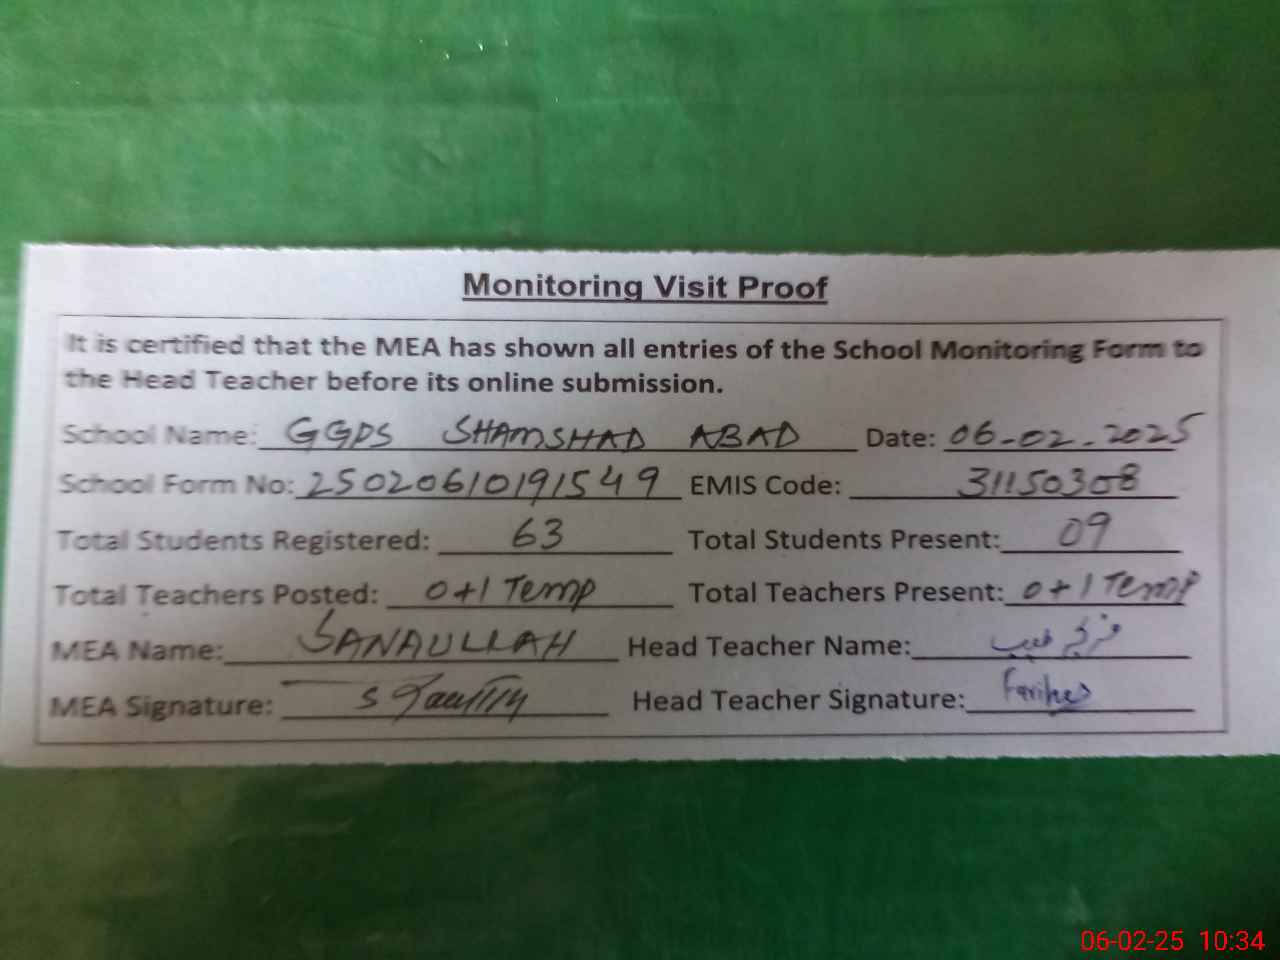 Monitoring Visit Proof
It is certified that the MEA has shown all entries of the School Monitoring Form to
the Head Teacher before its online submission.
School Name: GGPS SHAMSHAD ABAD Date: 06-02-2025
School Form No: 25020610191549 EMIS Code: 31150308
Total Students Registered: 63 Total Students Present: 09
Total Teachers Posted: 0+1 Temp Total Teachers Present: 0+1 Temp
MEA Name: SANAULLAH Head Teacher Name:
MEA Signature: Head Teacher Signature:
06-02-25 10:34